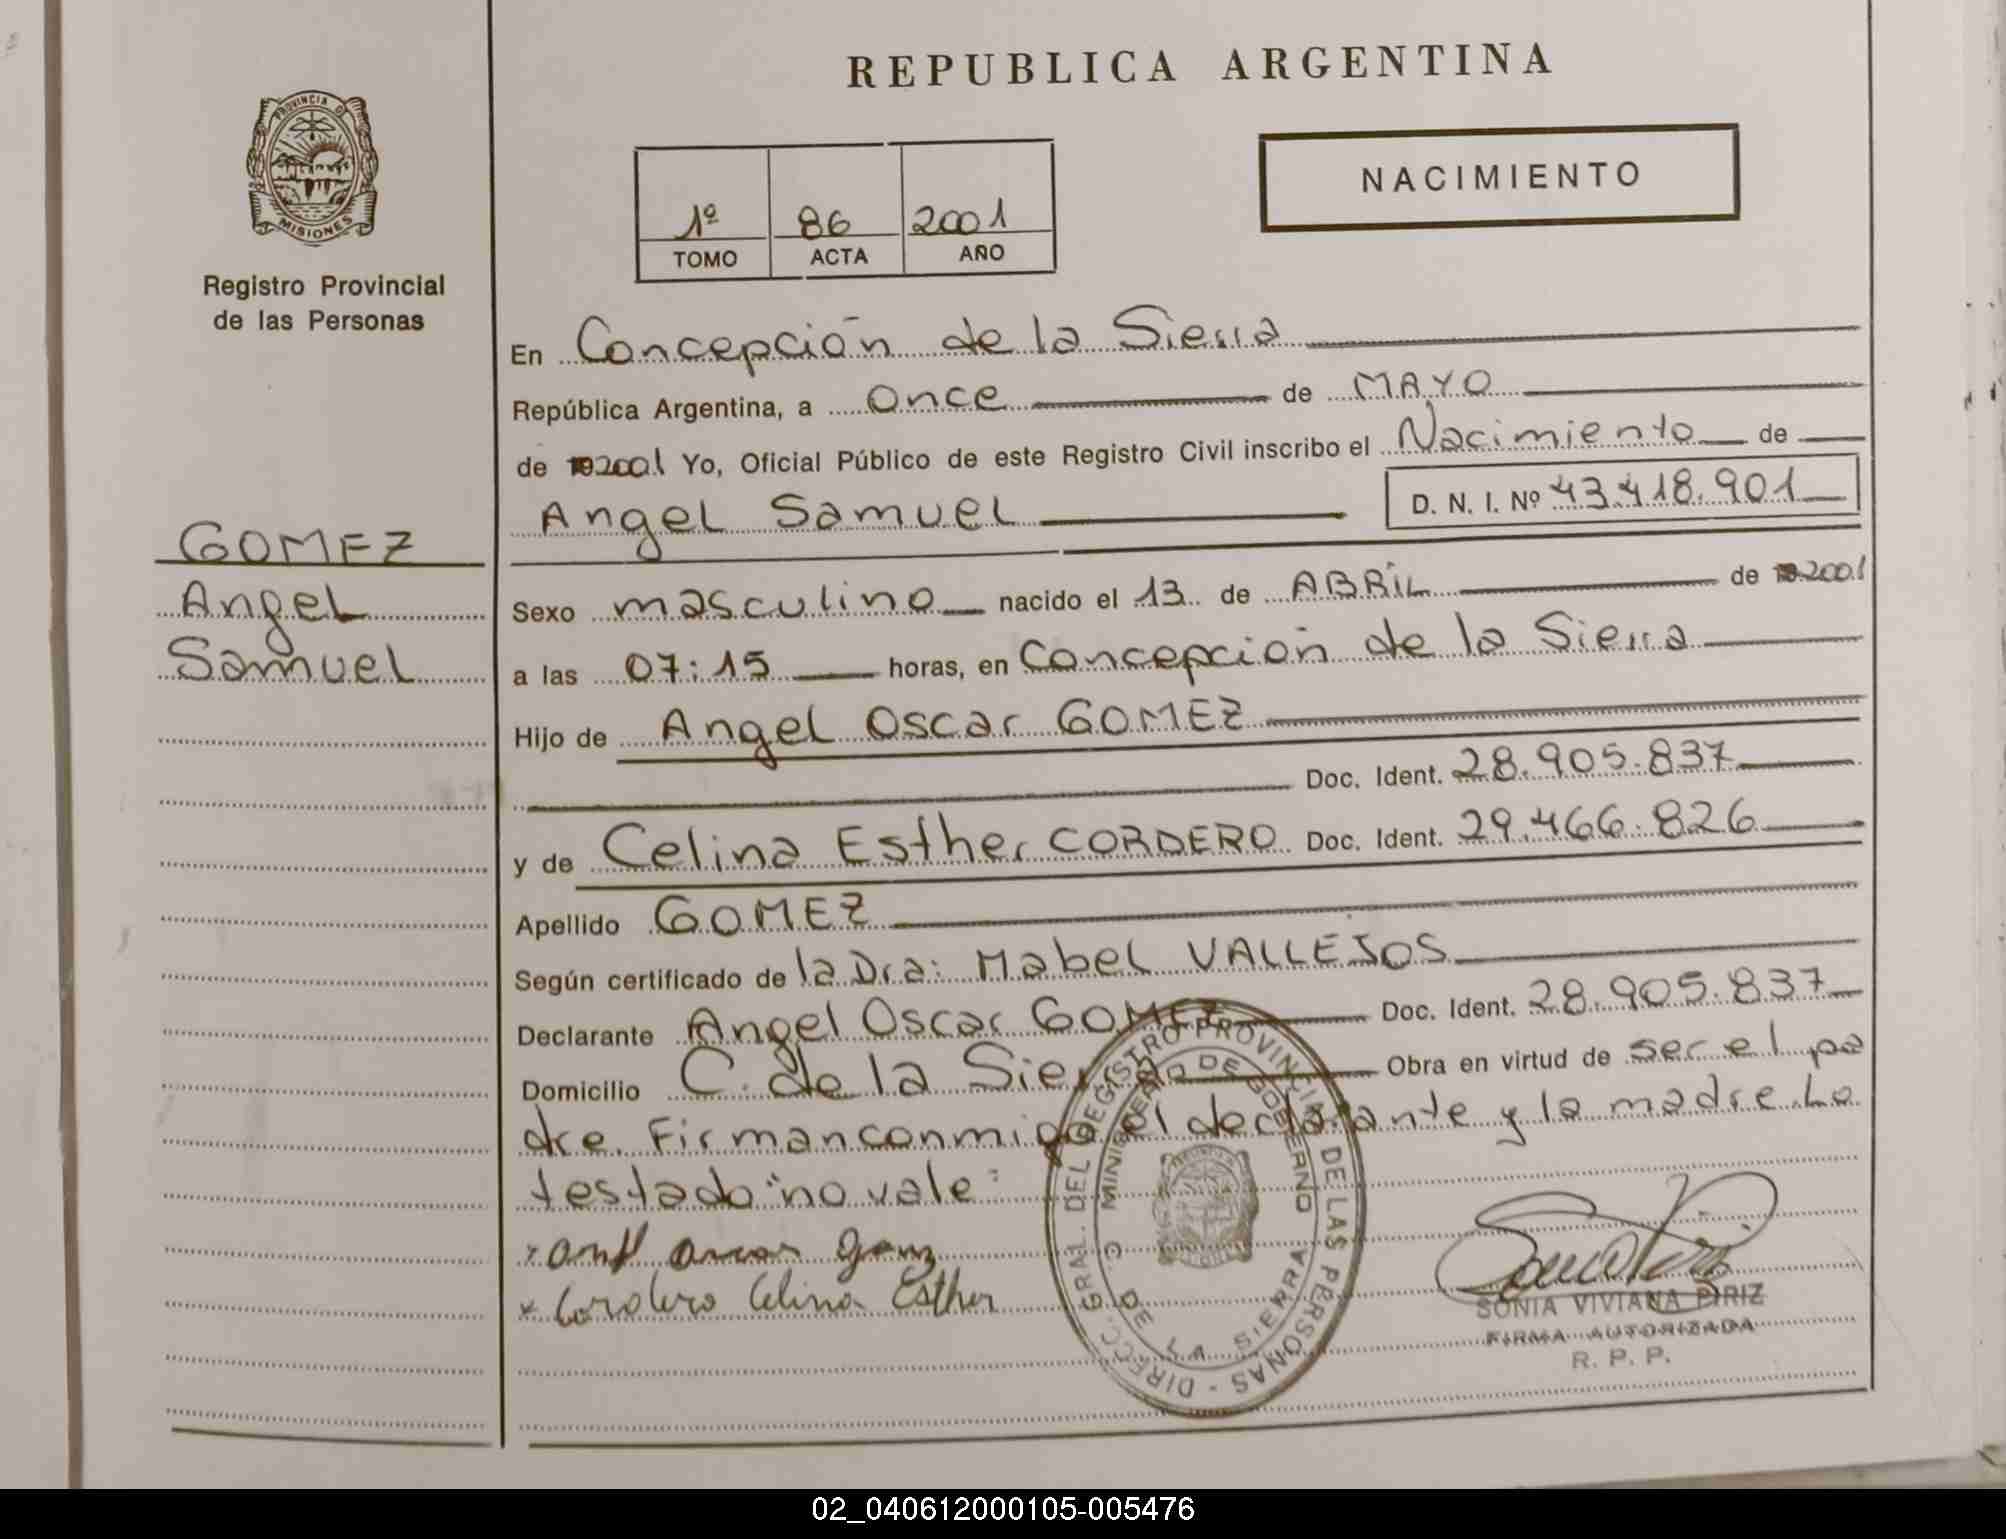 REPUBLICA ARGENTINA
PROVINCIA DE
MISIONES
Registro Provincial
de las Personas
NACIMIENTO
1º 86 2001
TOMO ACTA AÑO
En Concepción de la Sierra
República Argentina, a once de MAYO
de 19 2001 Yo, Oficial Público de este Registro Civil inscribo el Nacimiento de
Angel Samuel D. N. I. Nº 43.418.901
GOMEZ
Angel
Samuel
Sexo masculino nacido el 13 de ABRIL de 19 2001
a las 07:15 horas, en Concepción de la Sierra
Hijo de Angel Oscar GOMEZ
Doc. Ident. 28.905.837
y de Celina Esther CORDERO Doc. Ident. 29.466.826
Apellido GOMEZ
Según certificado de la Dra: Mabel VALLEJOS
Declarante Angel Oscar GOMEZ Doc. Ident. 28.905.837
Domicilio C. de la Sierra Obra en virtud de ser el pa
dre. Firman conmigo el declarante y la madre. Lo
testado "no vale"
x Oscar Gomez
x Cordero Celina Esther
DIRECC. GRAL. DEL REGISTRO PROVINCIAL DE LAS PERSONAS -
MINISTERIO DE GOBIERNO
C. DE LA SIERRA
SONIA VIVIANA PIRIZ
FIRMA AUTORIZADA
R. P. P.
02_040612000105-005476